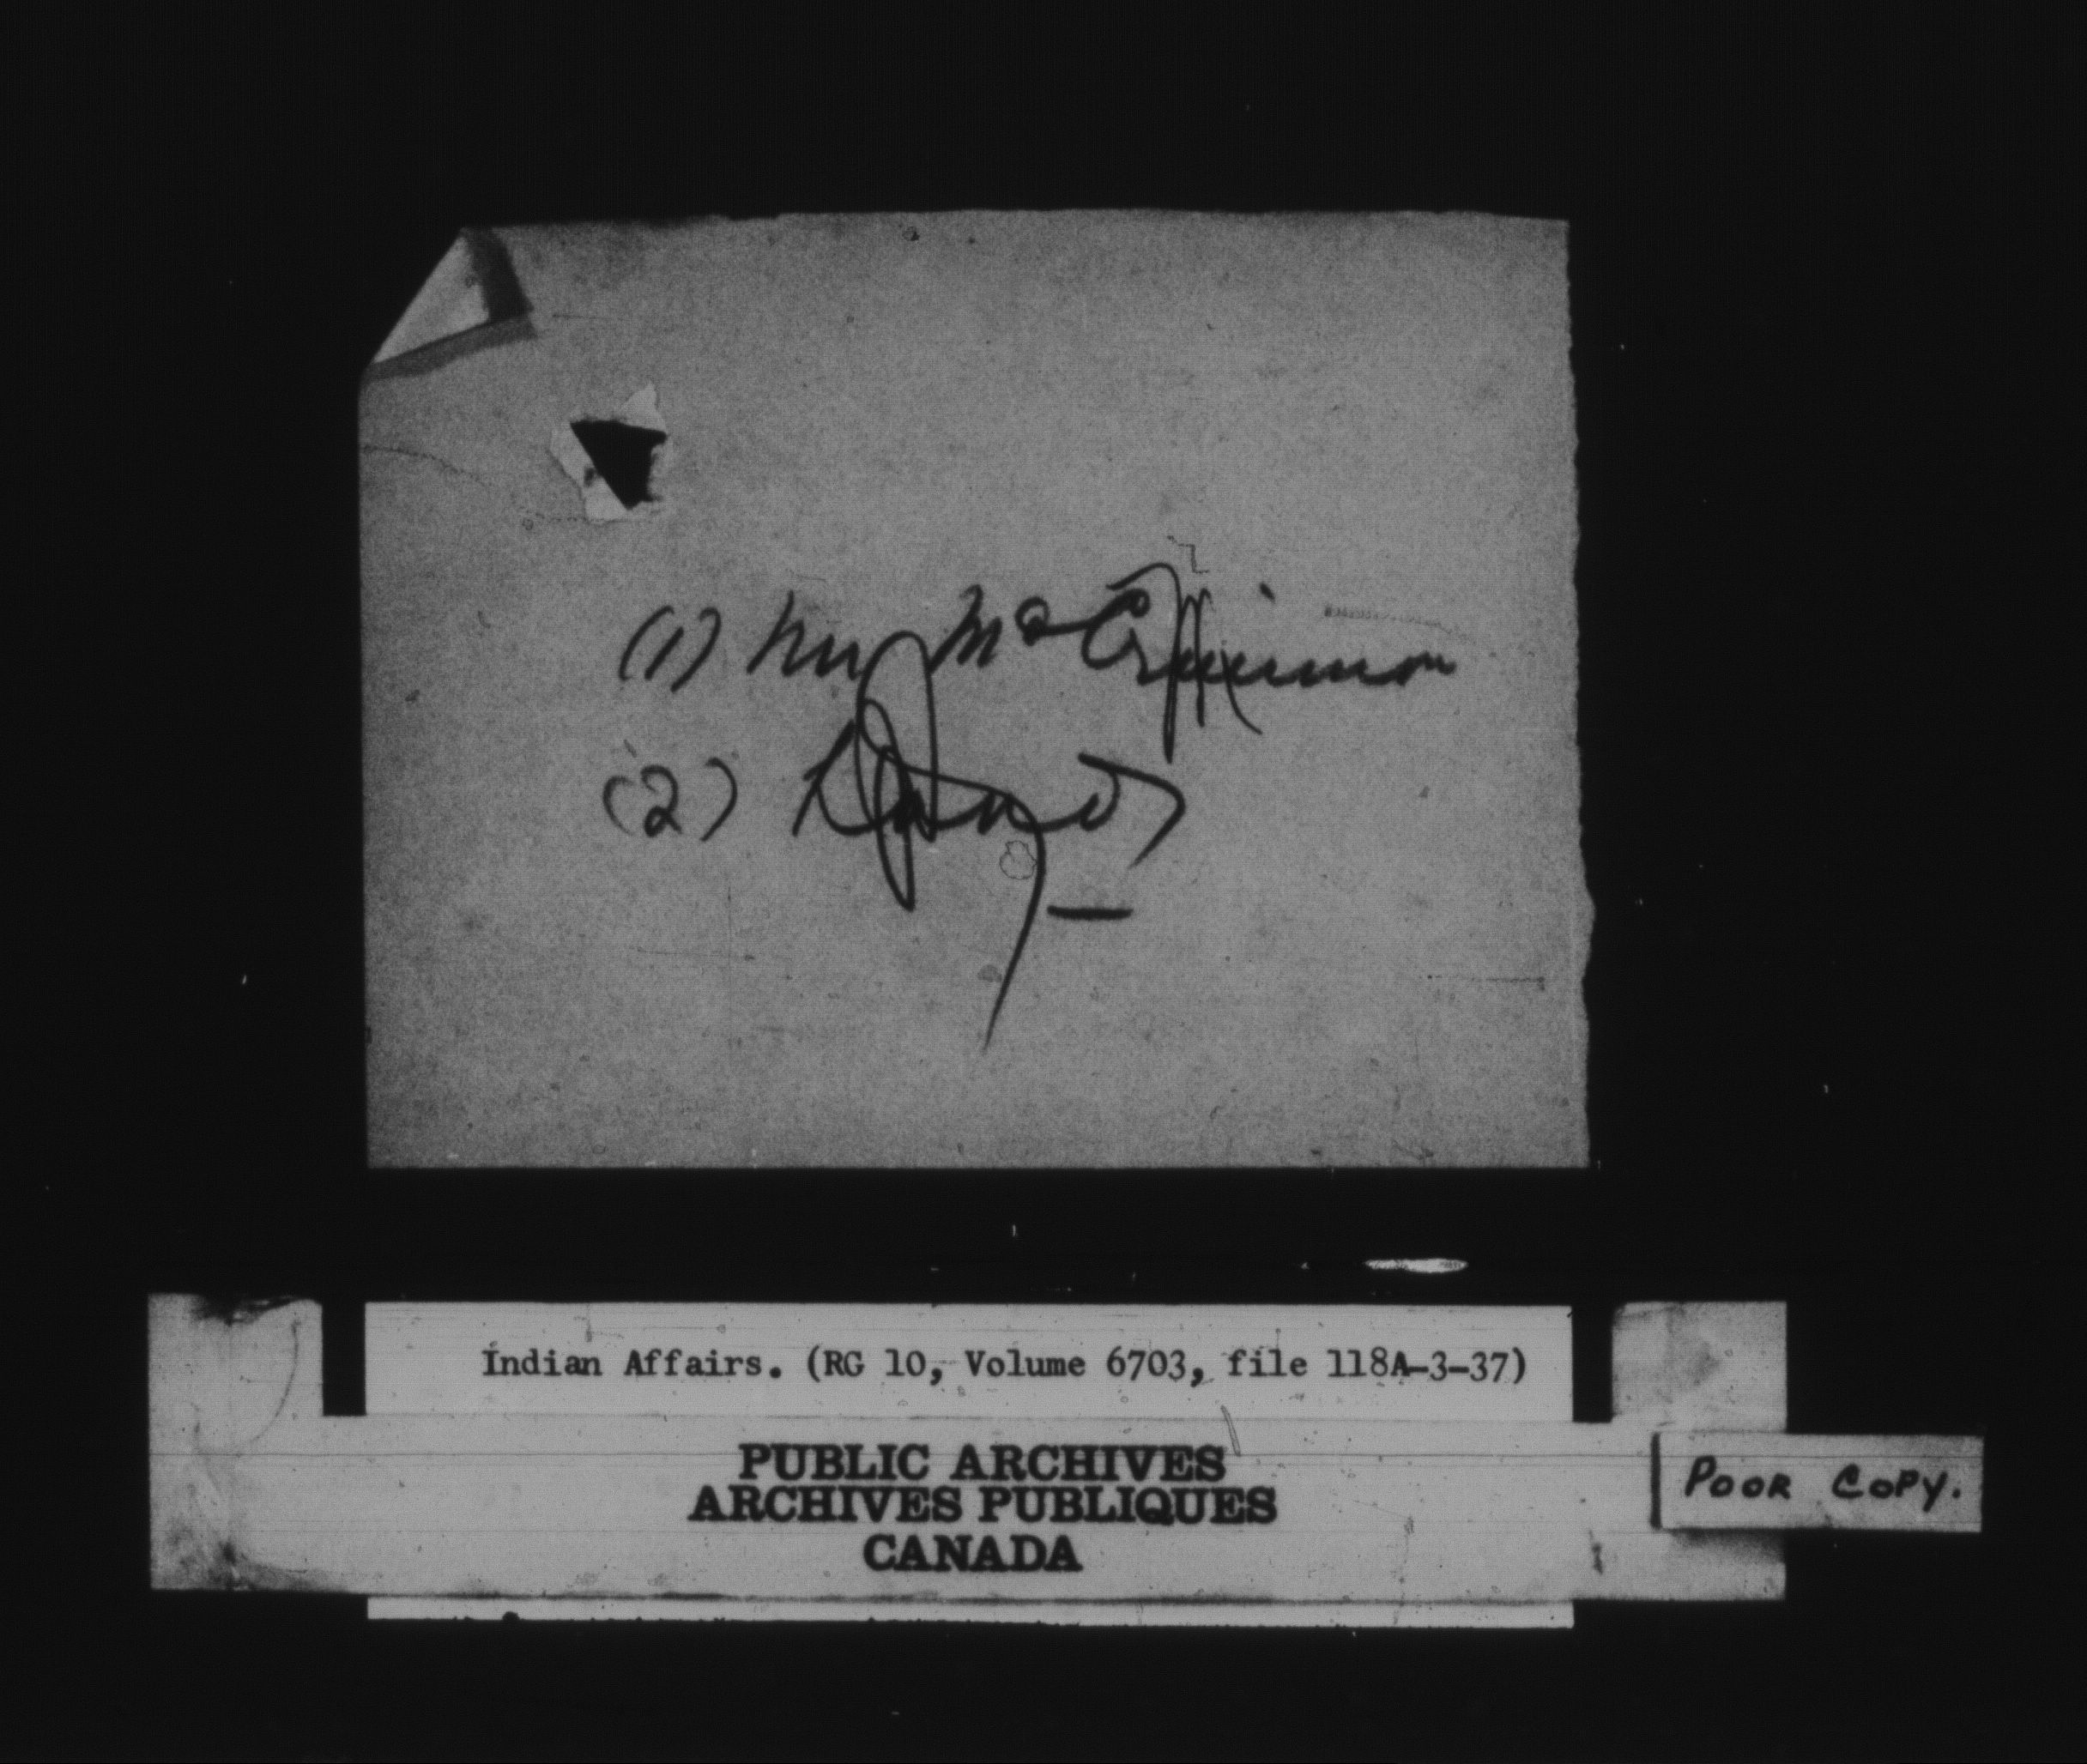 (1) Mr McCrimmon
(2)
Indian Affairs. (RG 10, Volume 6703, file 118A-3-37)
PUBLIC ARCHIVES
ARCHIVES PUBLIQUES
CANADA
POOR COPY.